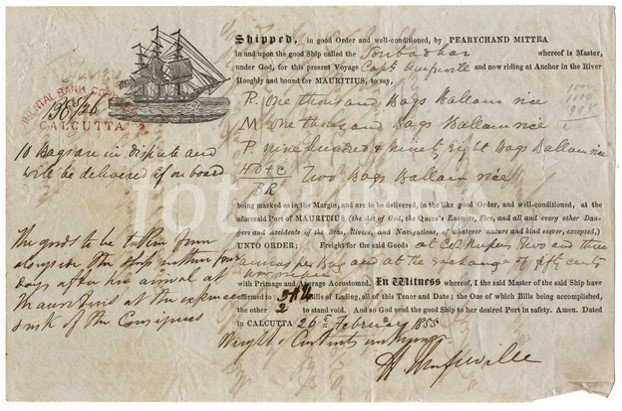 Shipped, in good Order and well-conditioned, by PEARYCHAND MITTRA
in and upon the good Ship called the Toubadhar whereof is Master,
under God, for this present Voyage Capt. and now riding at Anchor in the River
Hooghly and bound for MAURITIUS, to say,
ORIENTAL BANK
CALCUTTA
R. One thousand Bags Ballam rice
M one thousand Bags Ballam rice
P nine hundred & ninety eight Bags Ballam rice
HD & C
BR Two Bags Ballam rice
1000
1000
998
10 Bags are in dispute and
will be delivered if on board
being marked as in the Margin, and are to be delivered, in the like good Order, and well-conditioned, at the
aforesaid Port of MAURITIUS (the Act of God, the Queen's Enemies, Fire, and all and every other Dan-
gers and Accidents of the Seas, Rivers, and Navigations, of whatever nature and kind soever, excepted,)
UNTO ORDER; Freight for the said Goods at Co's Rupees Two and three
annas per Bag and at the exchange of fifty cents
per rupee
with Primage and Average Accustomed. In Witness whereof, I the said Master of the said Ship have
affirmed to Bills of Lading, all of this Tenor and Date; the One of which Bills being accomplished,
the other 2 to stand void. And so God send the good Ship to her desired Port in safety. Amen. Dated
in CALCUTTA 26 February 1855
Weight & Contents unknown
The goods to be taken from
alongside the ship within four
days after her arrival at
Mauritius at the expence
& risk of the Consignees